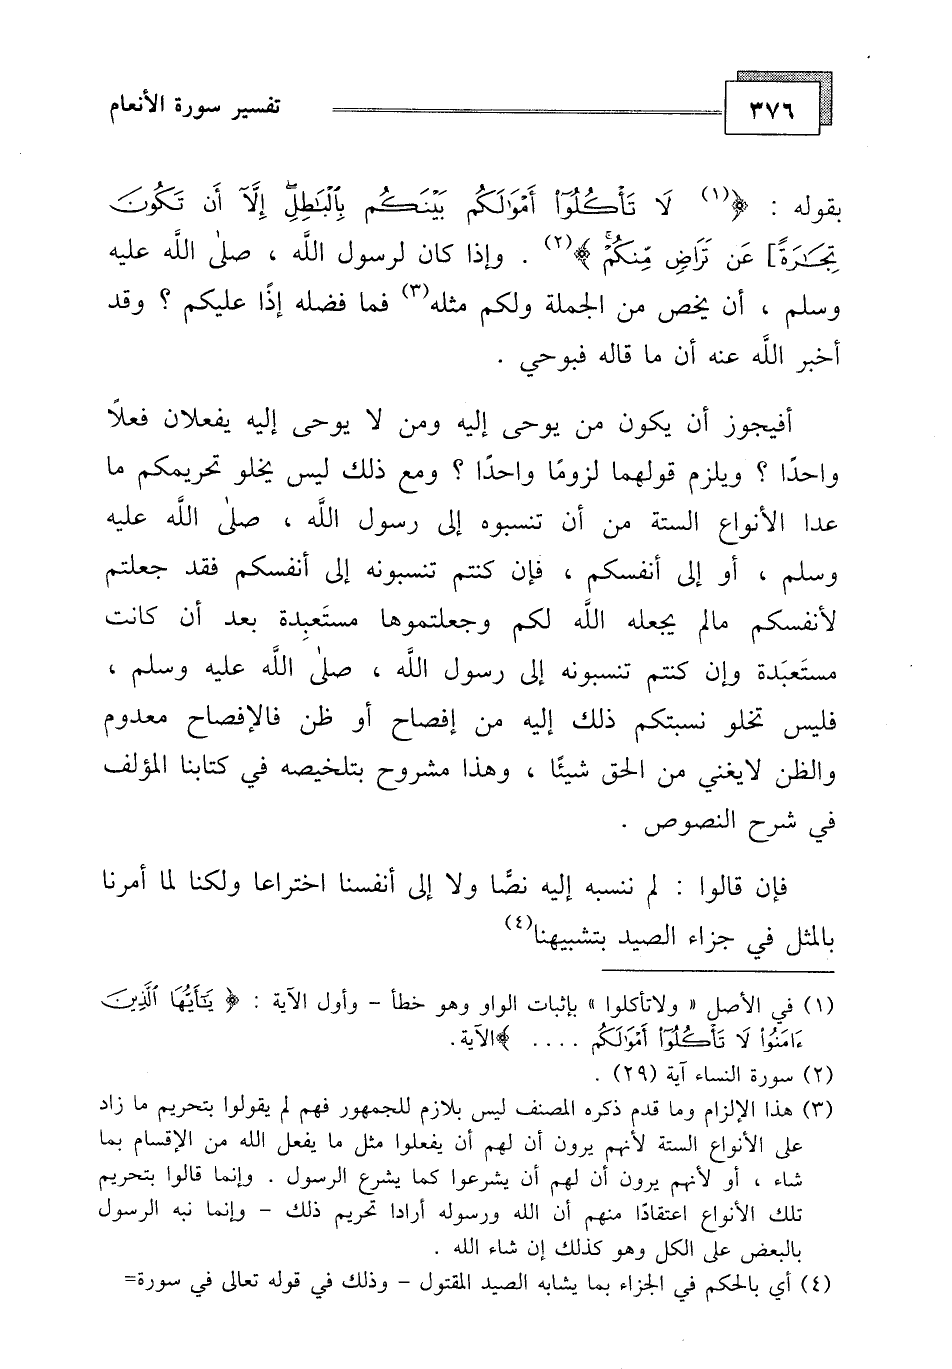 ٣٧٦
تفسير سورة الأنعام
بقوله : ﴿(١) لَا تَأْكُلُوٓا۟ أَمْوَٰلَكُم بَيْنَكُم بِٱلْبَٰطِلِ إِلَّآ أَن تَكُونَ
تِجَٰرَةً] عَن تَرَاضٍ مِّنكُمْ ۚ ﴾(٢) . وإذا كان لرسول اللَّه ، صلىٰ اللَّه عليه
وسلم ، أن يخص من الجملة ولكم مثله(٣) فما فضله إذًا عليكم ؟ وقد
أخبر اللَّه عنه أن ما قاله فبوحي .
أفيجوز أن يكون من يوحى إليه ومن لا يوحى إليه يفعلان فعلاً
واحدًا ؟ ويلزم قولهما لزومًا واحدًا ؟ ومع ذلك ليس يخلو تحريمكم ما
عدا الأنواع الستة من أن تنسبوه إلى رسول اللَّه ، صلىٰ اللَّه عليه
وسلم ، أو إلى أنفسكم ، فإن كنتم تنسبونه إلى أنفسكم فقد جعلتم
لأنفسكم مالم يجعله اللَّه لكم وجعلتموها مستَعبِدة بعد أن كانت
مستَعبَدة وإن كنتم تنسبونه إلى رسول اللَّه ، صلىٰ اللَّه عليه وسلم ،
فليس تخلو نسبتكم ذلك إليه من إفصاح أو ظن فالإفصاح معدوم
والظن لايغني من الحق شيئًا ، وهذا مشروح بتلخيصه في كتابنا المؤلف
في شرح النصوص .
فإن قالوا : لم ننسبه إليه نصًّا ولا إلى أنفسنا اختراعا ولكنا لما أمرنا
بالمثل في جزاء الصيد بتشبيهنا(٤)
(١) في الأصل « ولاتأكلوا » بإثبات الواو وهو خطأ – وأول الآية : ﴿ يَٰٓأَيُّهَا ٱلَّذِينَ
ءَامَنُوا۟ لَا تَأْكُلُوٓا۟ أَمْوَٰلَكُم .... ﴾الآية.
(٢) سورة النساء آية (٢٩) .
(٣) هذا الإلزام وما قدم ذكره المصنف ليس بلازم للجمهور فهم لم يقولوا بتحريم ما زاد
على الأنواع الستة لأنهم يرون أن لهم أن يفعلوا مثل ما يفعل الله من الإقسام بما
شاء ، أو لأنهم يرون أن لهم أن يشرعوا كما يشرع الرسول . وإنما قالوا بتحريم
تلك الأنواع اعتقادًا منهم أن الله ورسوله أرادا تحريم ذلك – وإنما نبه الرسول
بالبعض على الكل وهو كذلك إن شاء الله .
(٤) أي بالحكم في الجزاء بما يشابه الصيد المقتول – وذلك في قوله تعالى في سورة=